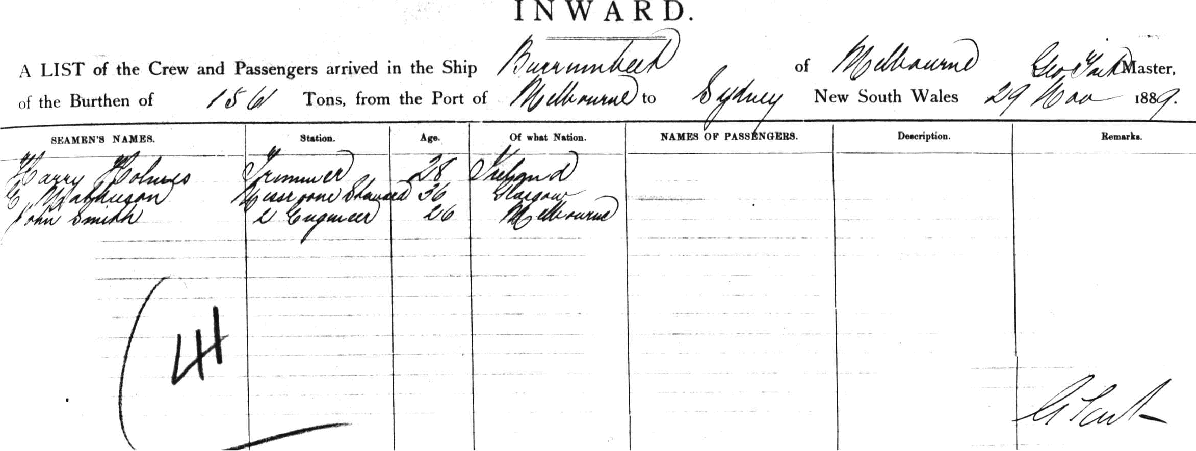 INWARD.
A LIST of the Crew and Passengers arrived in the Ship Burrumbeet of Melbourne Geo Tait Master,
of the Burthen of Tons, from the Port of Melbourne to Sydney New South Wales 29 Nov 1889.
SEAMEN'S NAMES. Station. Age. Of what Nation. NAMES OF PASSENGERS. Description. Remarks.
Harry Holmes Trimmer 28 Ireland
Mathieson Messroom Steward 36 Glasgow
John Smith 2 Engineer 26 Melbourne